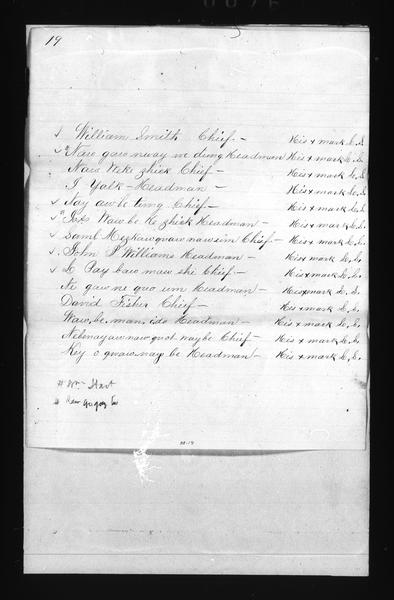 19
William Smith Chief — His x mark L.S.
Naw gaw nway we dung Headman His x mark L.S.
Naw Weke zhick Chief — His x mark L.S.
I Yalk — Headman — His x mark L.S.
Nay aw be tung Chief — His x mark L.S.
Pay Waw be Ke zhick Headman — His x mark L.S.
Saml Mezkawgwaw naw sim Chief — His x mark L.S.
John P Williams Headman — His x mark L.S.
Pay baw maw she Chief — His x mark L.S.
Ne gaw ne quo um Headman — His x mark L.S.
David Fisher Chief — His x mark L.S.
Waw be man i do Headman — His x mark L.S.
Nebenayawnawquot waybe Chief — His x mark L.S.
Key o gwaw nay be Headman — His x mark L.S.
# Wm Hart